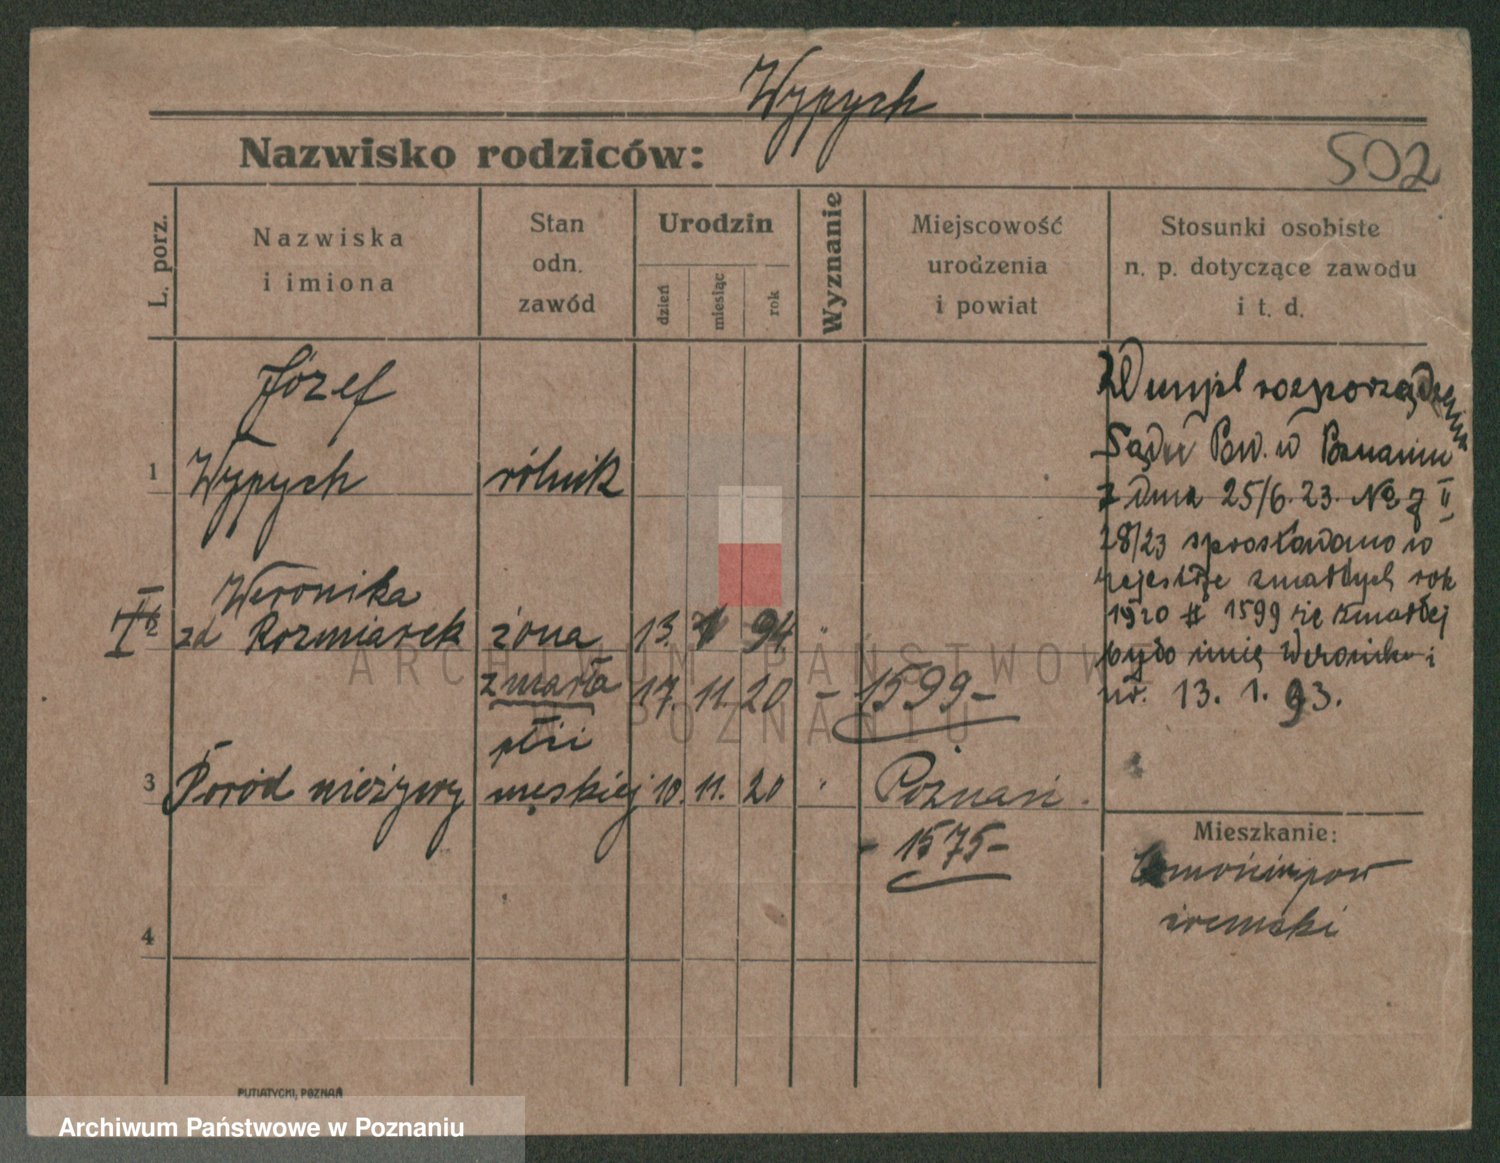 Wypych
Nazwisko rodziców:
502
L. porz.
Nazwiska
i imiona
Stan
odn.
zawód
Urodzin
dzień
miesiąc
rok
Wyznanie
Miejscowość
urodzenia
i powiat
Stosunki osobiste
n. p. dotyczące zawodu
i t. d.
Józef
1 Wypych rólnik
II
Weronika
zd Rozmiarek żona 13. 1 94. "
zmarła 17. 11. 20 – 1599–
płci
3 Poród nieżywy męskiej 10. 11. 20 " Poznań.
– 1575–
4
W myśl rozporządzenia
Sądu Pow. w Poznaniu
z dnia 25/6. 23. No 7 II
28/23 sprostowano w
rejestrze zmarłych rok
1920 # 1599 że zmarłej
było imię Weronika i
ur. 13. 1. 93.
Mieszkanie:
pow
śremski
PUTIATYCKI, POZNAŃ
ARCHIWUM PAŃSTWOWE
W POZNANIU
Archiwum Państwowe w Poznaniu